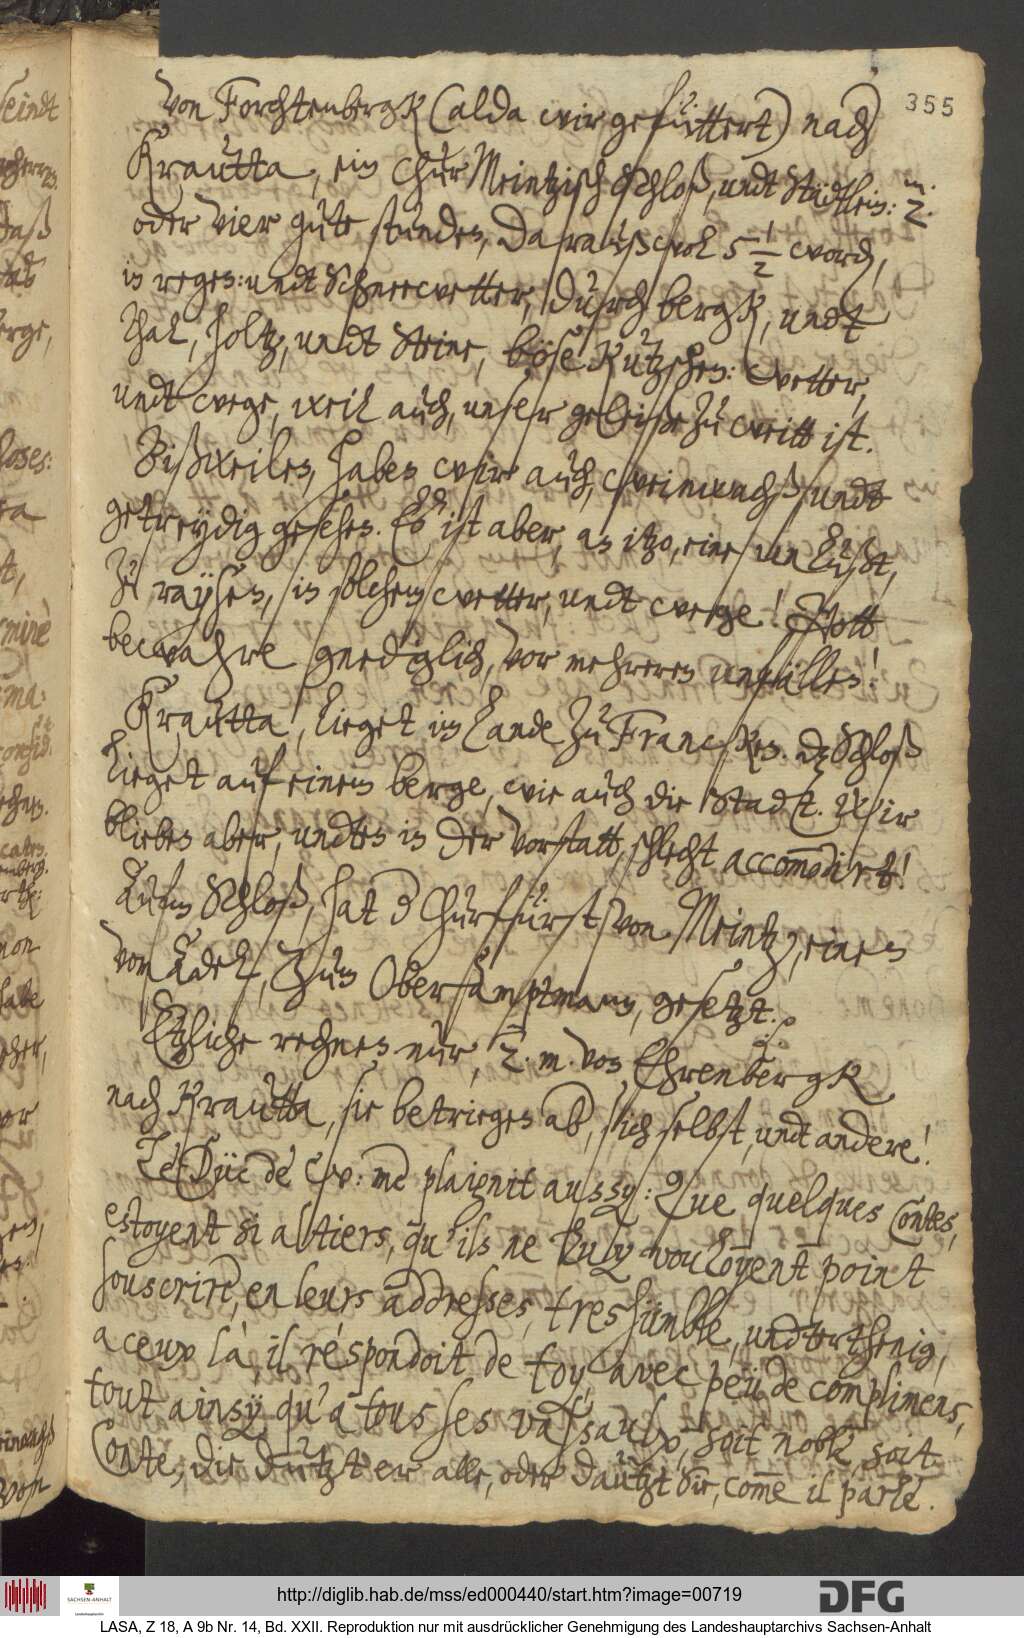 355
Von Forchtenbergk (alda wir gefüttert) nach
Krautta, ein ChurMeintzisch Schloß, undt Städtlein: m. 2.
oder vier gute stunden, Daraus wol 5 1/2 wordt,
in regen: undt Schneewetter, durch bergk, undt
thal, holtz, undt Steine, böse Kutzschen: wetter,
undt wege, weil auch, unser geleiße zu weitt ist.
Bißweilen, haben wir auch, weinwachß undt
getreydig gesehen. Es ist aber, an itzo, eine unlust,
zu raysen, in solchem wetter, undt wege! Gott
bewahre gnediglich, vor mehreren unfällen!
Krautta, lieget im Lande zu Francken. dz Schloß
lieget auf einem berge, wie auch die Stadt. Wir
blieben aber, undten in der vorstatt, schlecht accommodirt!
Aufm Schloß, hat der Churfürst von Meintz, einen
von Adel, zum OberhAmptmann, gesetzt.
Etzliche rechnen nur, 2. m. von Ehrenbergk
nach Krautta, sie betriegen aber, sich selbst, undt andere!
Le Düc de W: me plaignit aussy: Que quelques Contes,
estoyent si altiers, qu'ils ne luy vouloyent point
souscrire, en leurs addresses, tres humble, undterthenig,
a ceux là, il respondoit de toy, avec peu de complimens,
tout ainsy qu'a tous ses vassaulx, soit noble, soit
Conte, die dutzt er alle, oder dautzt Sie, come il parle.
http://diglib.hab.de/mss/ed000440/start.htm?image=00719
DFG
SACHSEN-ANHALT
LASA, Z 18, A 9b Nr. 14, Bd. XXII. Reproduktion nur mit ausdrücklicher Genehmigung des Landeshauptarchivs Sachsen-Anhalt